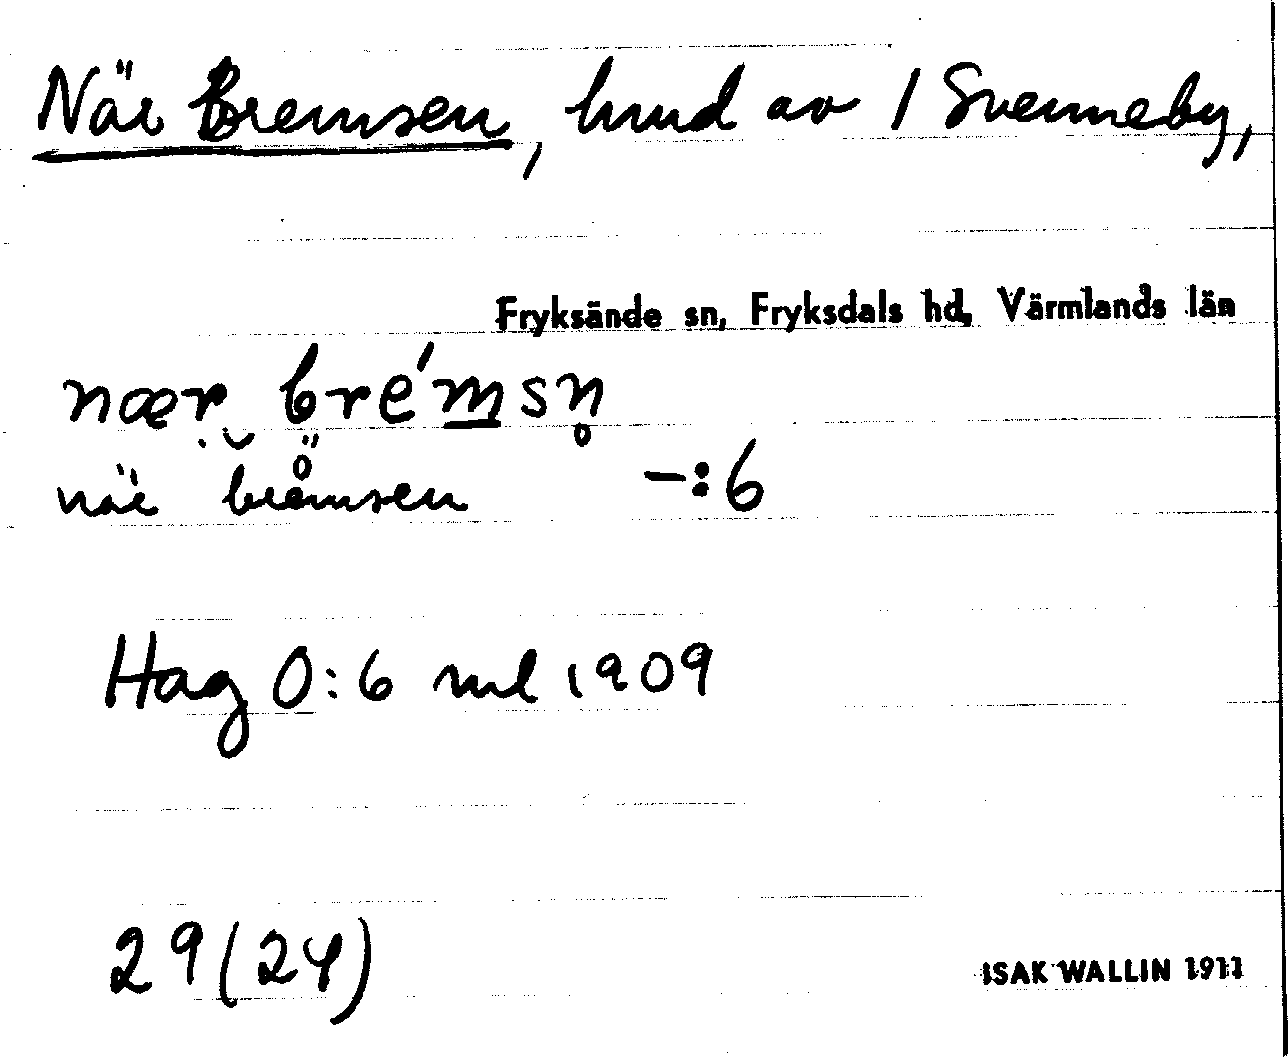 När Bremsen, hmd av 1 Svenneby,
Fryksände sn, Fryksdals hd, Värmlands län
nær bré́msn̥
när brömsen —:6
Hag 0:6 ml 1909
29(24)
ISAK WALLIN 1911